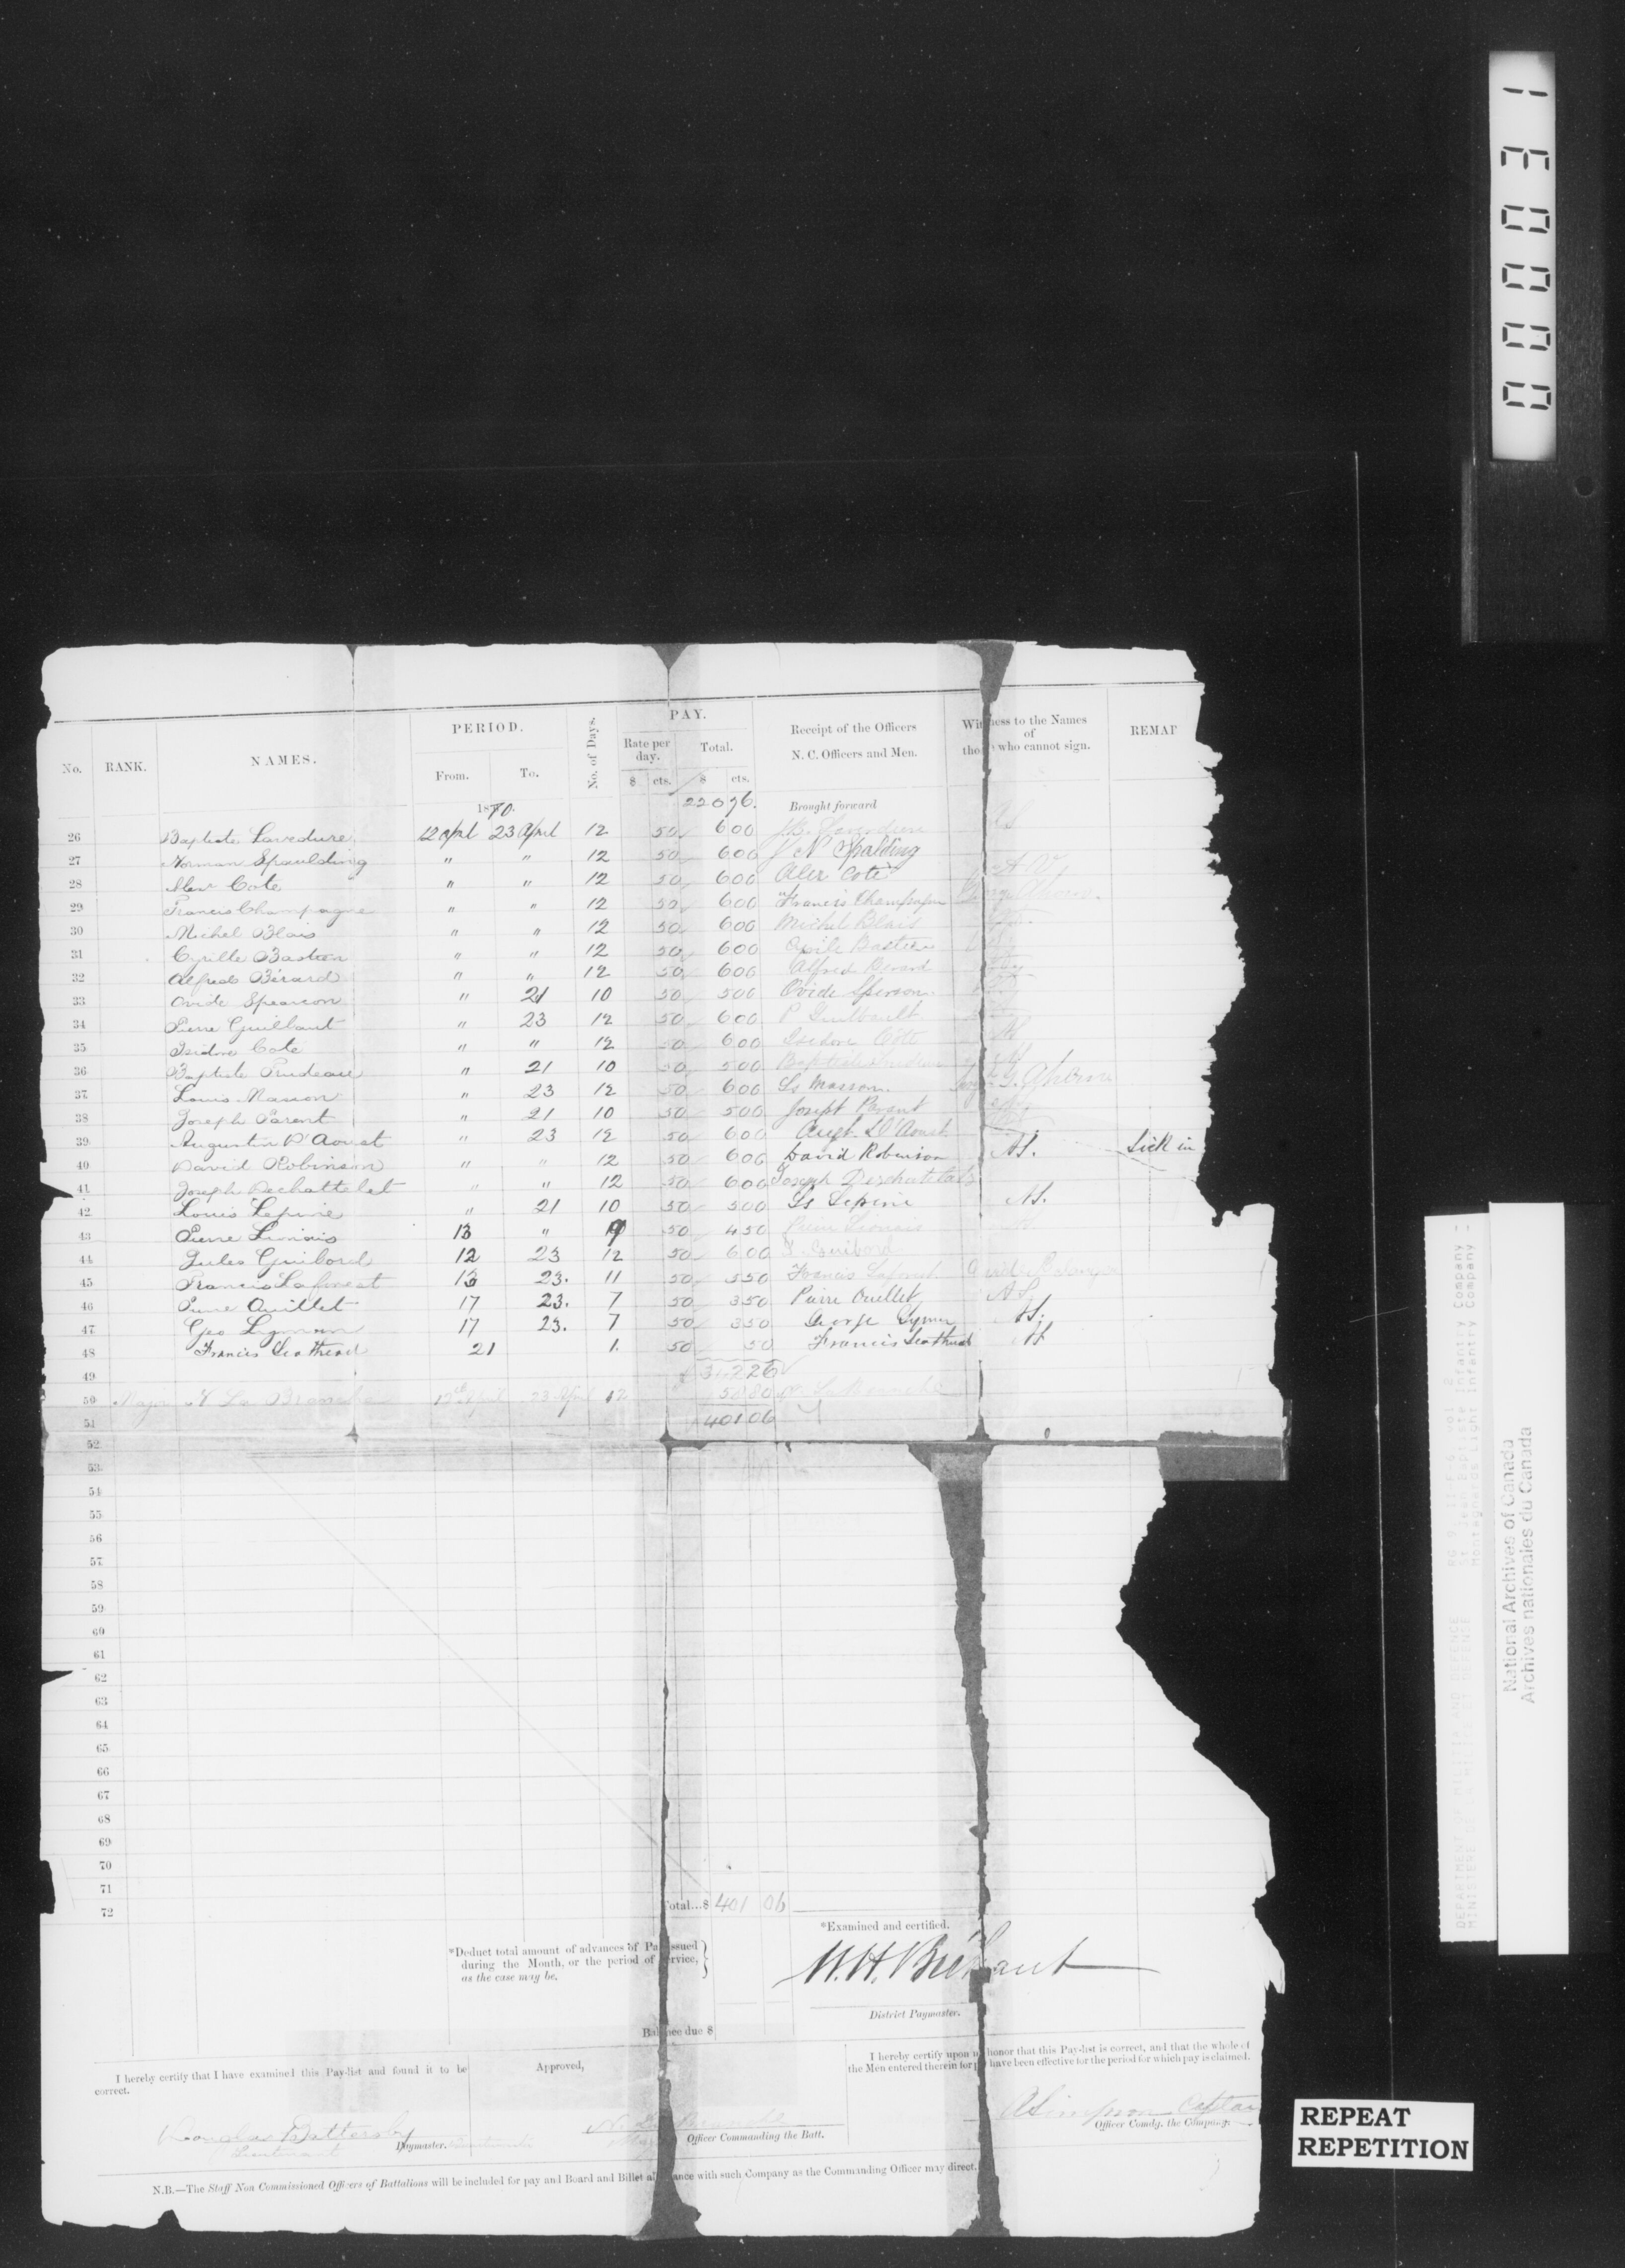 000031
No. RANK. NAMES. PERIOD. From. To. No. of Days. PAY. Rate per day. $ cts. Total. $ cts. Receipt of the Officers N. C. Officers and Men. Witness to the Names of those who cannot sign. REMAR
1870. 22076. Brought forward
26 Baptiste Lavedure 12 April 23 April 12 50 600
27 Norman Spaulding " " 12 50 600 J N Spalding
28 Alexr Cote " " 12 50 600 Alex Coté
29 Francis Champagne " " 12 50 600 Francis Champagne
30 Michel Blais " " 12 50 600 Michel Blais
31 Cyrille Bastien " " 12 50 600 Bastien
32 Alfred Bérard " " 12 50 600 Alfred Berard
33 Ovide Spearson " 21 10 50 500 Ovide Sperson
34 Pierre Guilbaut " 23 12 50 600 P Guilbault
35 Isidore Cote " " 12 50 600 Isidore Cote
36 Baptiste Prudeau " 21 10 50 500 Baptiste
37 Louis Masson " 23 12 50 600 Ls Masson.
38 Joseph Parent " 21 10 50 500 Joseph Parent
39 Augustin D'Aoust " 23 12 50 600 Augt. D'Aoust
40 David Robinson " " 12 50 600 David Robinson AS. Sick in
41 Joseph Dechattelet " " 12 50 600 Joseph Deschatelets
42 Louis Lepine " 21 10 50 500 Ls Lepine AS.
43 Pierre Lionais 13 " 9 50 450 Pierre Lionais
44 Jules Guibord 12 23 12 50 600 J. Guibord
45 Francis Laforest 13 23. 11 50 550 Francis Laforest
46 Pierre Ouillet 17 23. 7 50 350 Pierre Ouellet AS.
47 Geo Lyman 17 23. 7 50 350 George Lymen AS.
48 Francis Leathead 21 1. 50 50 Francis Leathead AS
49 34226
50 Major N La Branche 12th April 23 April 12 5880
51 40106
52
53
54
55
56
57
58
59
60
61
62
63
64
65
66
67
68
69
70
71
72
Total...$ 401 06
*Examined and certified,
*Deduct total amount of advances of Pay issued during the Month, or the period of service, as the case may be.
District Paymaster.
Balance due $
I hereby certify that I have examined this Pay-list and found it to be correct.
Approved,
I hereby certify upon my honor that this Pay-list is correct, and that the whole of the Men entered therein for pay have been effective for the period for which pay is claimed.
Douglas Battersby
Lieutenant
Paymaster.
N. La Branche
Officer Commanding the Batt.
ASimpson Captai
Officer Comdg. the Company.
N.B.—The Staff Non Commissioned Officers of Battalions will be included for pay and Board and Billet allowance with such Company as the Commanding Officer may direct.
REPEAT
REPETITION
DEPARTMENT OF MILITIA AND DEFENCE
MINISTERE DE LA MILICE ET DEFENSE
RG 9 II F 6 vol 2
St Jean Baptiste Infantry Company
Montagnards Light Infantry Company
National Archives of Canada
Archives nationales du Canada